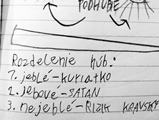 PODHUBIE
Rozdelenie húb:
1. jeblé - KURIATKO
2. jebové - SATAN
3. nejeblé - RIZIK KRAVSKÝ